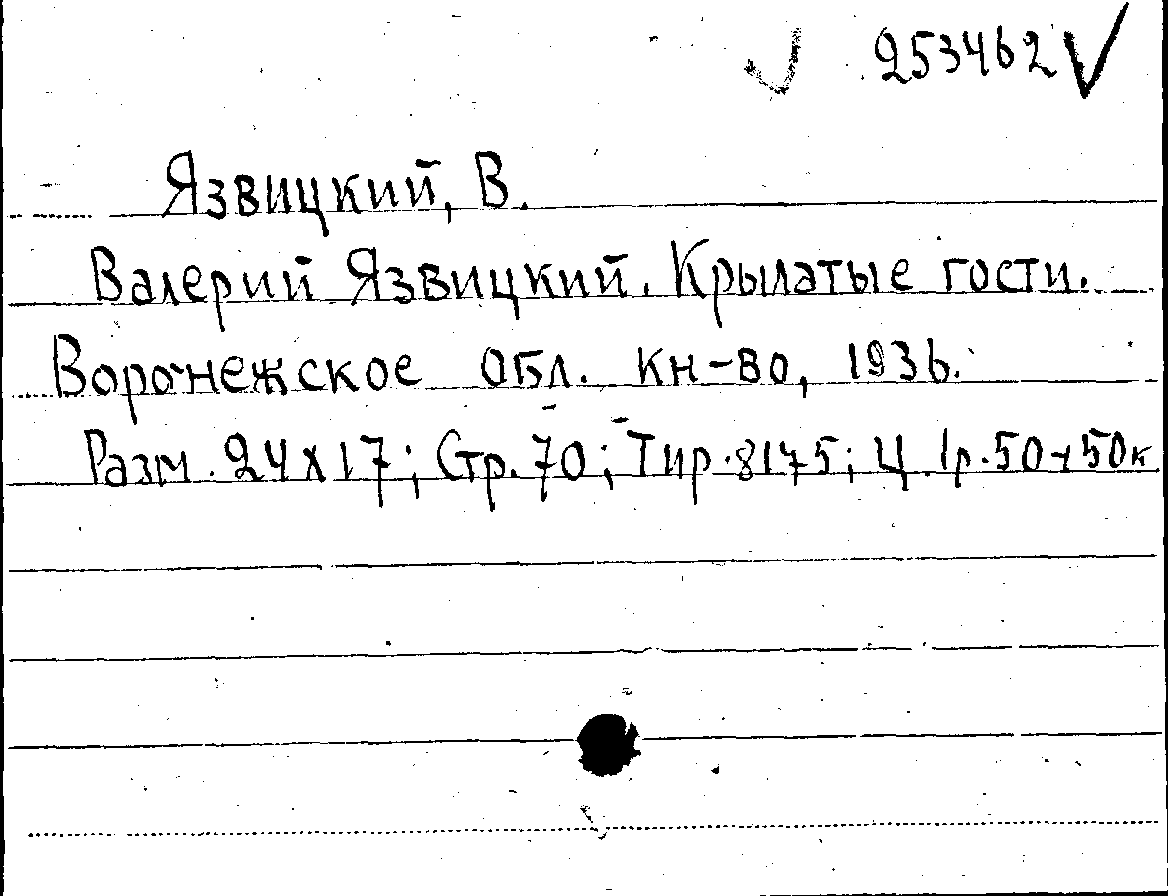 253462
Язвицкий, В.
Валерий Язвицкий. Крылатые гости.
Воронежское обл. кн-во, 1936.
Разм. 24х17; Стр. 70; Тир. 8175; Ц. 1р.50+50к